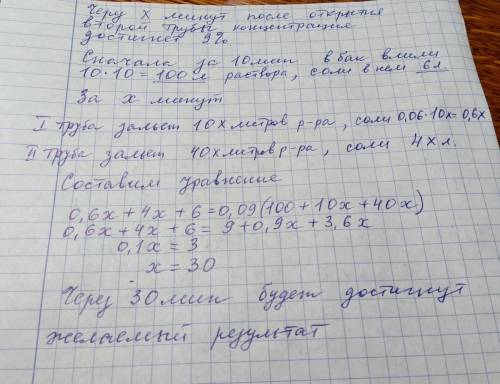 Через X минут после открытия
второй трубы концентрация
достигнет 9%
Сначала за 10 мин в бак влили
10·10 = 100 л раствора, соли в нем 6 л
За x минут
I труба зальет 10x литров р-ра, соли 0,06·10x = 0,6x
II труба зальет 40x литров р-ра, соли 4x л.
Составим уравнение
0,6x + 4x + 6 = 0,09(100 + 10x + 40x)
0,6x + 4x + 6 = 9 + 0,9x + 3,6x
0,1x = 3
x = 30
Через 30 мин будет достигнут
желаемый результат